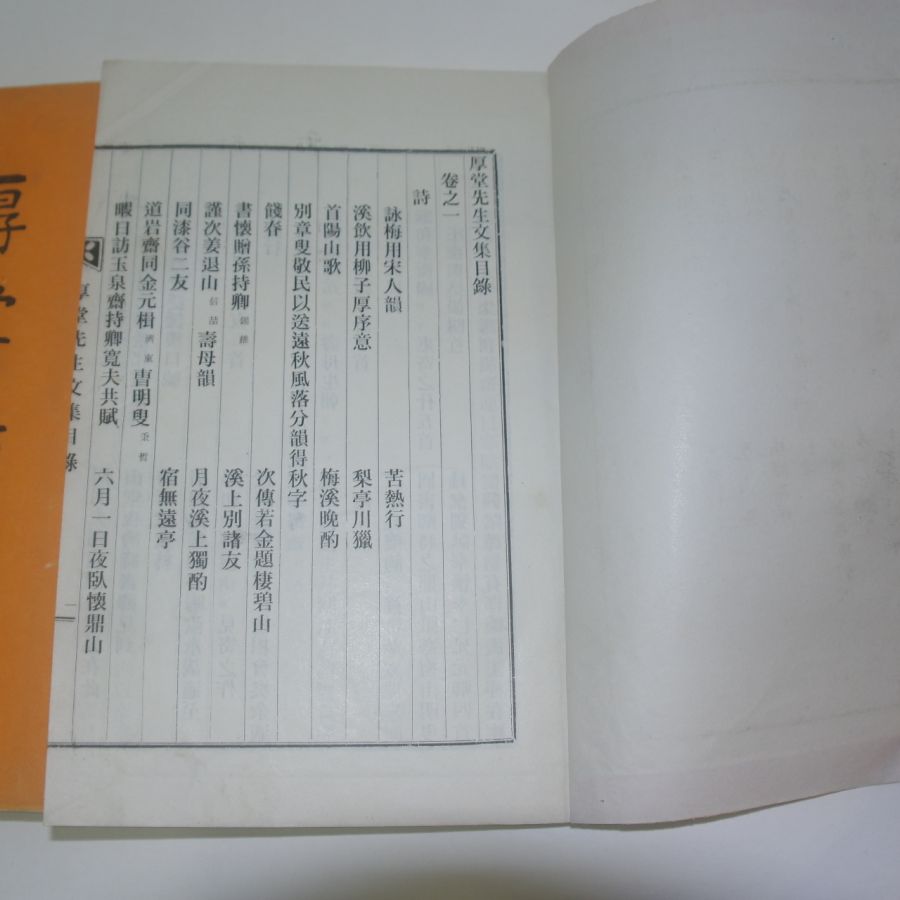 厚堂先生文集目錄
卷之一
詩
詠梅用宋人韻 苦熱行
溪飮用柳子厚序意 梨亭川獵
首陽山歌 梅溪晚酌
別章叟敬民以送遠秋風落分韻得秋字
餞春 次傳若金題棲碧山
書懷贈孫持卿 溪上別諸友
謹次姜退山 壽母韻 月夜溪上獨酌
同漆谷二友 宿無遠亭
道岩齋同金元楫 曺明叟 秉哲
暇日訪玉泉齋持卿寬夫共賦 六月一日夜臥懷鼎山
厚堂先生文集目錄 一
厚堂